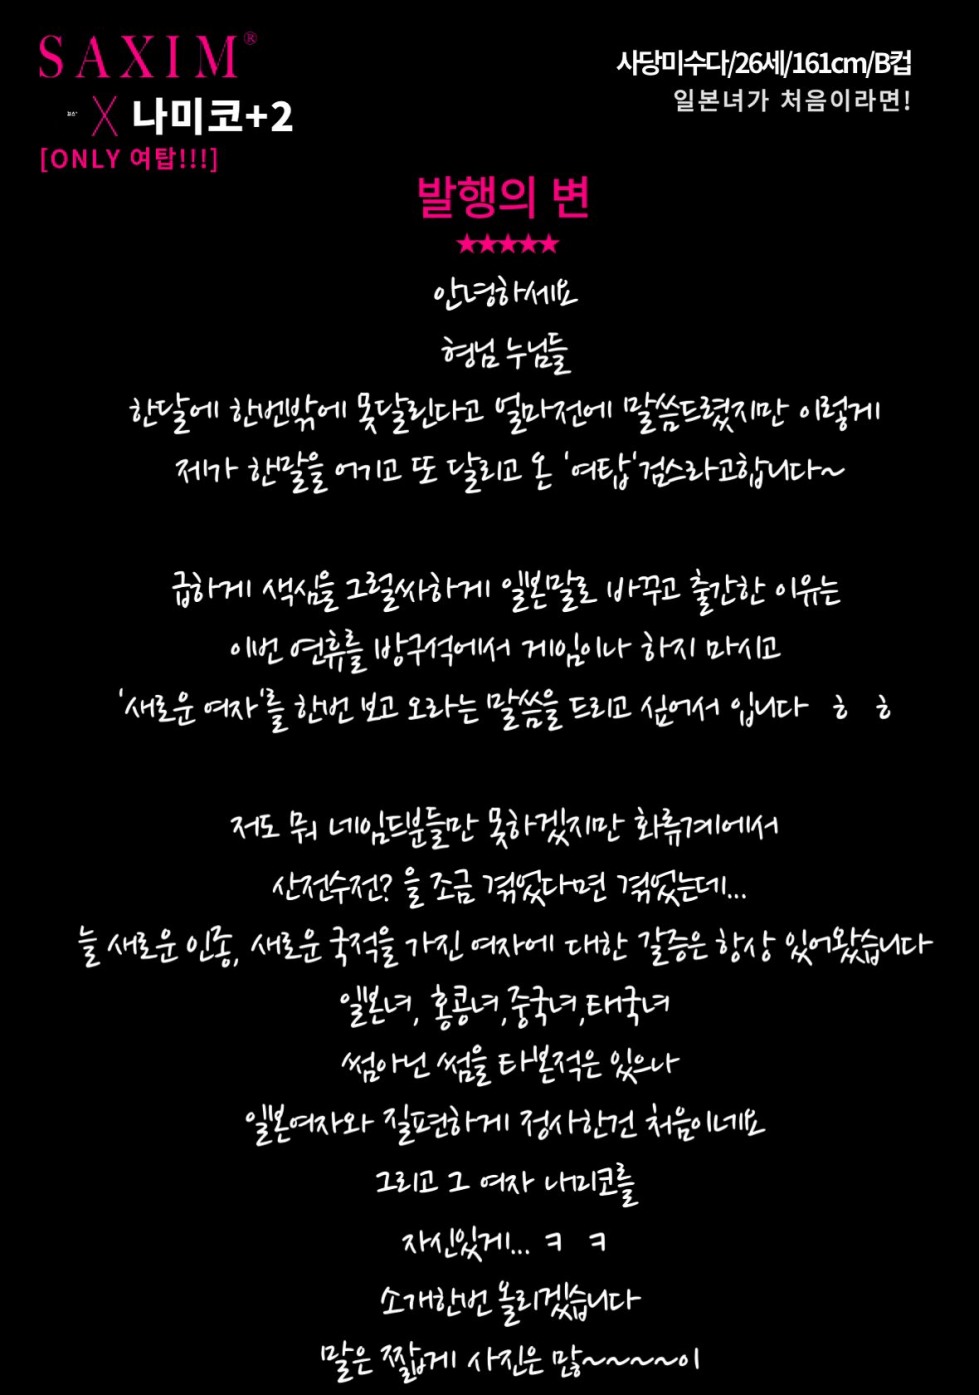 SAXIM®
X 나미코+2
[ONLY 여탑!!!]
사당미수다/26세/161cm/B컵
일본녀가 처음이라면!
발행의 변
★★★★★
안녕하세요
형님 누님들
한달에 한번밖에 못달린다고 얼마전에 말씀드렸지만 이렇게
제가 한말을 어기고 또 달리고 온 '여탑'검스라고합니다~
급하게 색심을 그럴싸하게 일본말로 바꾸고 출간한 이유는
이번 연휴를 방구석에서 게임이나 하지 마시고
'새로운 여자'를 한번 보고 오라는 말씀을 드리고 싶어서 입니다 ㅎ ㅎ
저도 뭐 네임드분들만 못하겠지만 화류계에서
산전수전? 을 조금 겪었다면 겪었는데...
늘 새로운 인종, 새로운 국적을 가진 여자에 대한 갈증은 항상 있어왔습니다
일본녀, 홍콩녀,중국녀,태국녀
썸아닌 썸을 타본적은 있으나
일본여자와 질펀하게 정사한건 처음이네요
그리고 그 여자 나미코를
자신있게... ㅋ ㅋ
소개한번 올리겠습니다
말은 짧게 사진은 많~~~~이